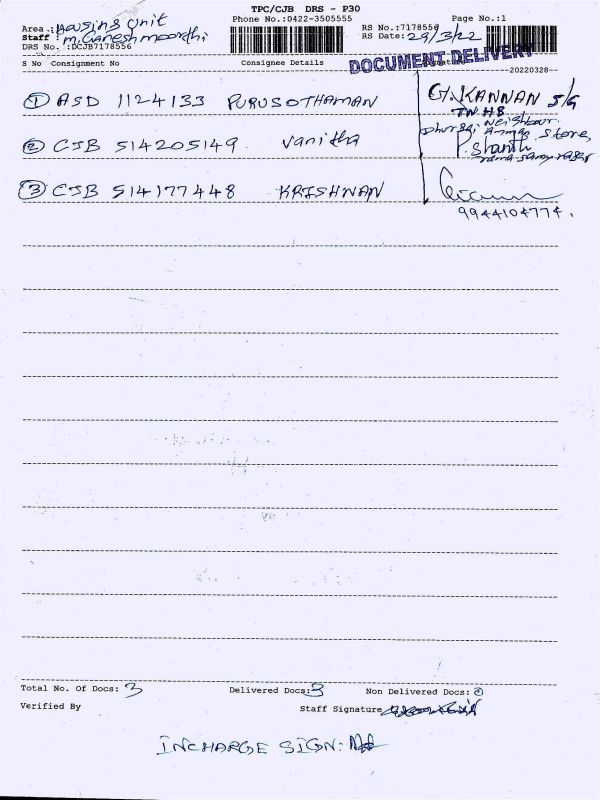 TPC/CJB DRS - P30
Area : Housing Unit Phone No.:0422-3505555 Page No.:1
Staff : M. Ganesh moorthi RS No.:7178556
DRS No. :DCJB7178556 RS Date: 29/3/22
DOCUMENT DELIVERY
S No Consignment No Consignee Details
20220328
① ASD 1124133 PURUSOTHAMAN G. KANNAN S/G
TNHB
② CJB 514205149 Vanitha Neighbour
Stores
P. Shanthi
③ CJB 514177448 KRISHNAN
9944104774.
Total No. Of Docs: 3 Delivered Docs: 3 Non Delivered Docs:
Verified By Staff Signature
INCHARGE SIGN: